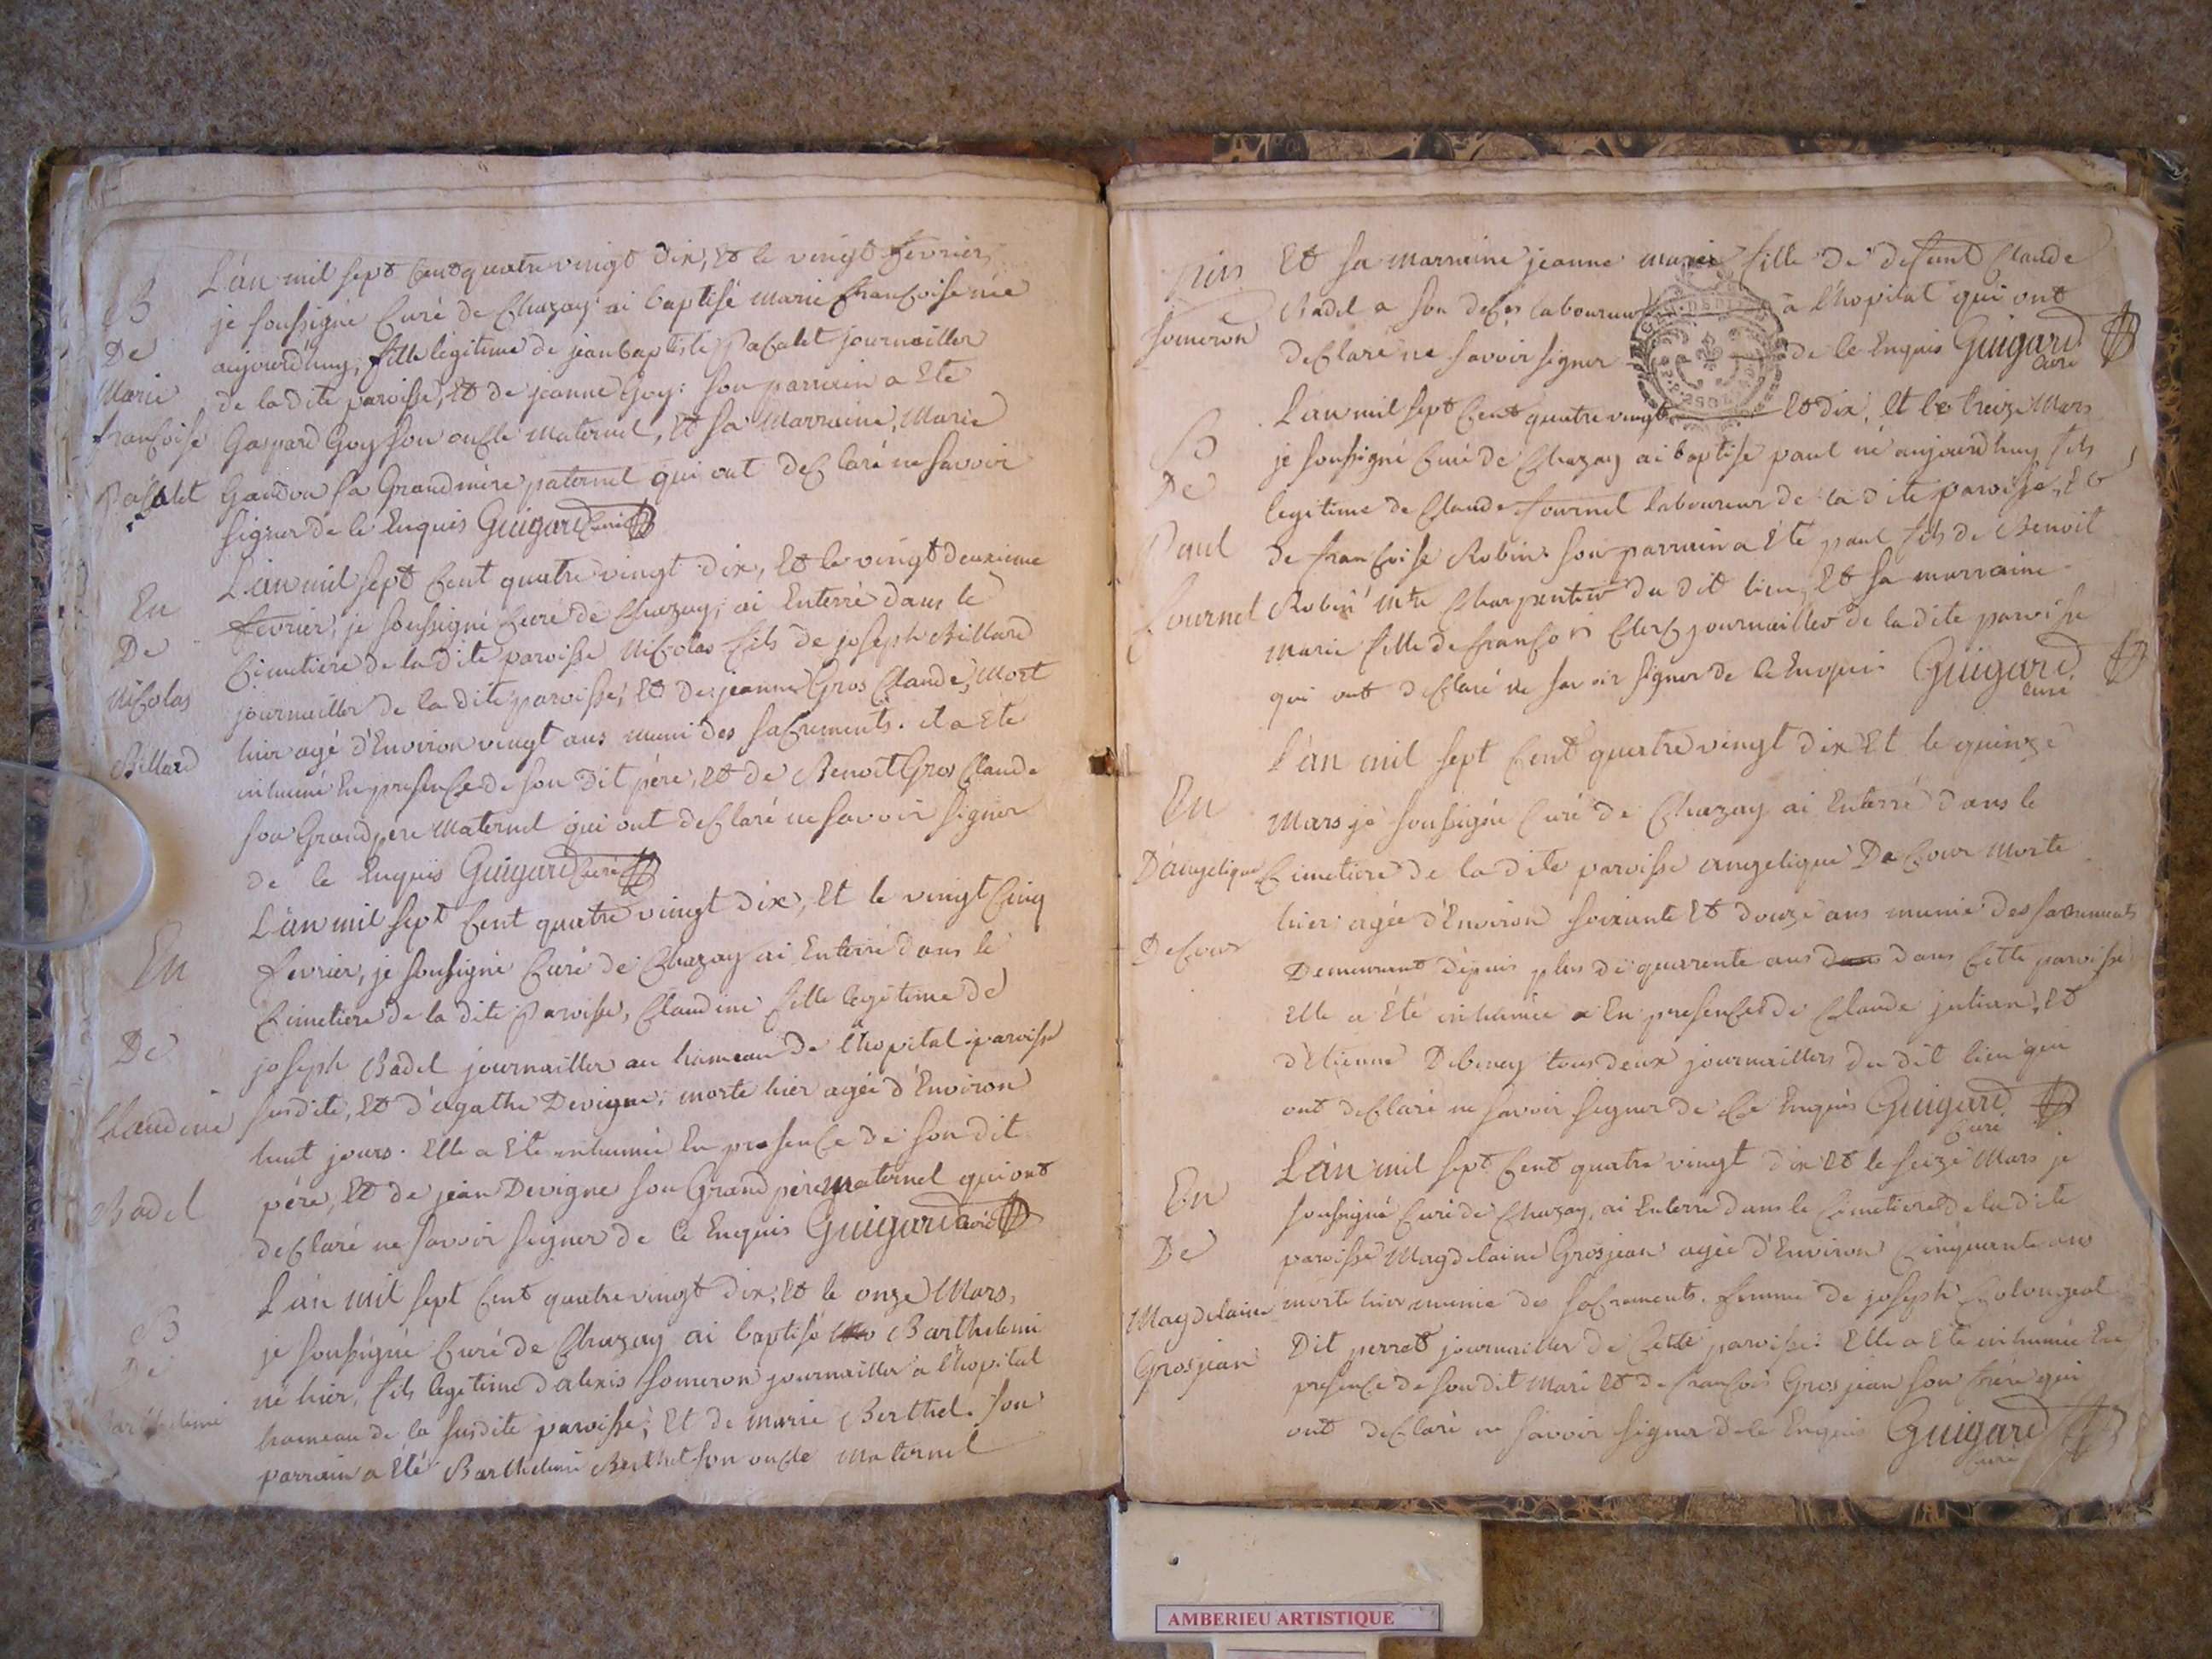 B
De
Marie
francoise
Pacalet
L'an mil sept cent quatre vingt dix, et le vingt fevrier,
je soussigné Curé de Chazay ai baptisé marie francoise née
aujourd'huy, fille legitime de jean baptiste Pacalet journailler
de la dite paroisse, et de jeanne Goy: son parrain a eté
Gaspard Goy son oncle maternel, et sa marraine, Marie
Gandon sa Grand mère paternel qui ont declaré ne savoir
signer de ce enquis Guigard Curé
En
De
Nicolas
Billard
L'an mil sept cent quatre vingt dix, et le vingt deuxieme
fevrier, je soussigné Curé de Chazay, ai Enterré dans le
Cimetiere de la dite paroisse Nicolas fils de joseph Billard
journailler de la dite paroisse, et de jeanne Gros Claude, Mort
hier agé d'Environ vingt ans muni des sacrements. il a eté
inhumé En presence de son dit père, et de Benoit Gros Claude
son Grand pere Maternel qui ont declaré ne savoir signer
de ce enquis Guigard Curé
En
De
Claudine
Badel
L'an mil sept cent quatre vingt dix, et le vingt cinq
fevrier, je soussigné Curé de Chazay ai Enterré dans le
Cimetiere de la dite Paroisse, Claudine fille legitime de
joseph Badel journailler au hameau de l'hopital paroisse
susdite, et d'agathe Devigne; morte hier agée d'Environ
huit jours. Elle a eté inhumée En presence de son dit
père, et de jean Devigne son Grand père maternel qui ont
declaré ne savoir signer de ce enquis Guigard Curé
B
De
Barthelemi
L'an mil sept cent quatre vingt dix, et le onze Mars,
je soussigné Curé de Chazay ai baptisé Barthelemi
né hier, fils legitime d'alexis someron journailler a l'hopital
hameau de la susdite paroisse, et de marie Berthel. son
parrain a eté Barthelemi Berthel son oncle maternel
someron
Et sa marraine jeanne marie fille de defunt Claude
Badel a son deces laboureur à l'hopital qui ont
declaré ne savoir signer de ce enquis Guigard
Curé
B
De
Paul
fournel
L'an mil sept cent quatre vingt et dix, et le treize Mars
je soussigné Curé de Chazay ai baptisé paul né aujourd'huy fils
legitime de Claude fournel laboureur de la dite paroisse, et
de francoise Robin. son parrain a été paul fils de Benoit
Robin Mtre Charpentier du dit lieu, et sa marraine
marie fille de francois Clerc journailler de la dite paroisse
qui ont declaré ne savoir signer de ce enquis Guigard
Curé
En
D'angelique
Decour
L'an mil sept cent quatre vingt dix et le quinze
Mars je soussigné Curé de Chazay ai Enterré dans le
Cimetiere de la dite paroisse angelique De Cour Morte
hier agée d'Environ soixante et douze ans munie des sacrements
Demeurant depuis plus de quarente ans dans cette paroisse
Elle a été inhumée En presence de Claude julian, et
d'Etienne Debeney tous deux journaillers du dit lieu qui
ont declaré ne savoir signer de ce enquis Guigard
Curé
En
De
Magdelaine
Grosjean
L'an mil sept cent quatre vingt dix et le seize Mars je
soussigné Curé de Chazay, ai Enterré dans le Cimetiere de la dite
paroisse Magdelaine Grosjean agée d'Environ cinquante ans
morte hier munie des sacrements. femme de joseph
Dit perret journailler de cette paroisse. Elle a eté inhumée En
presence de son dit Mari et de francois Grosjean son frère qui
ont declaré ne savoir signer de ce enquis Guigard
Curé
AMBERIEU ARTISTIQUE